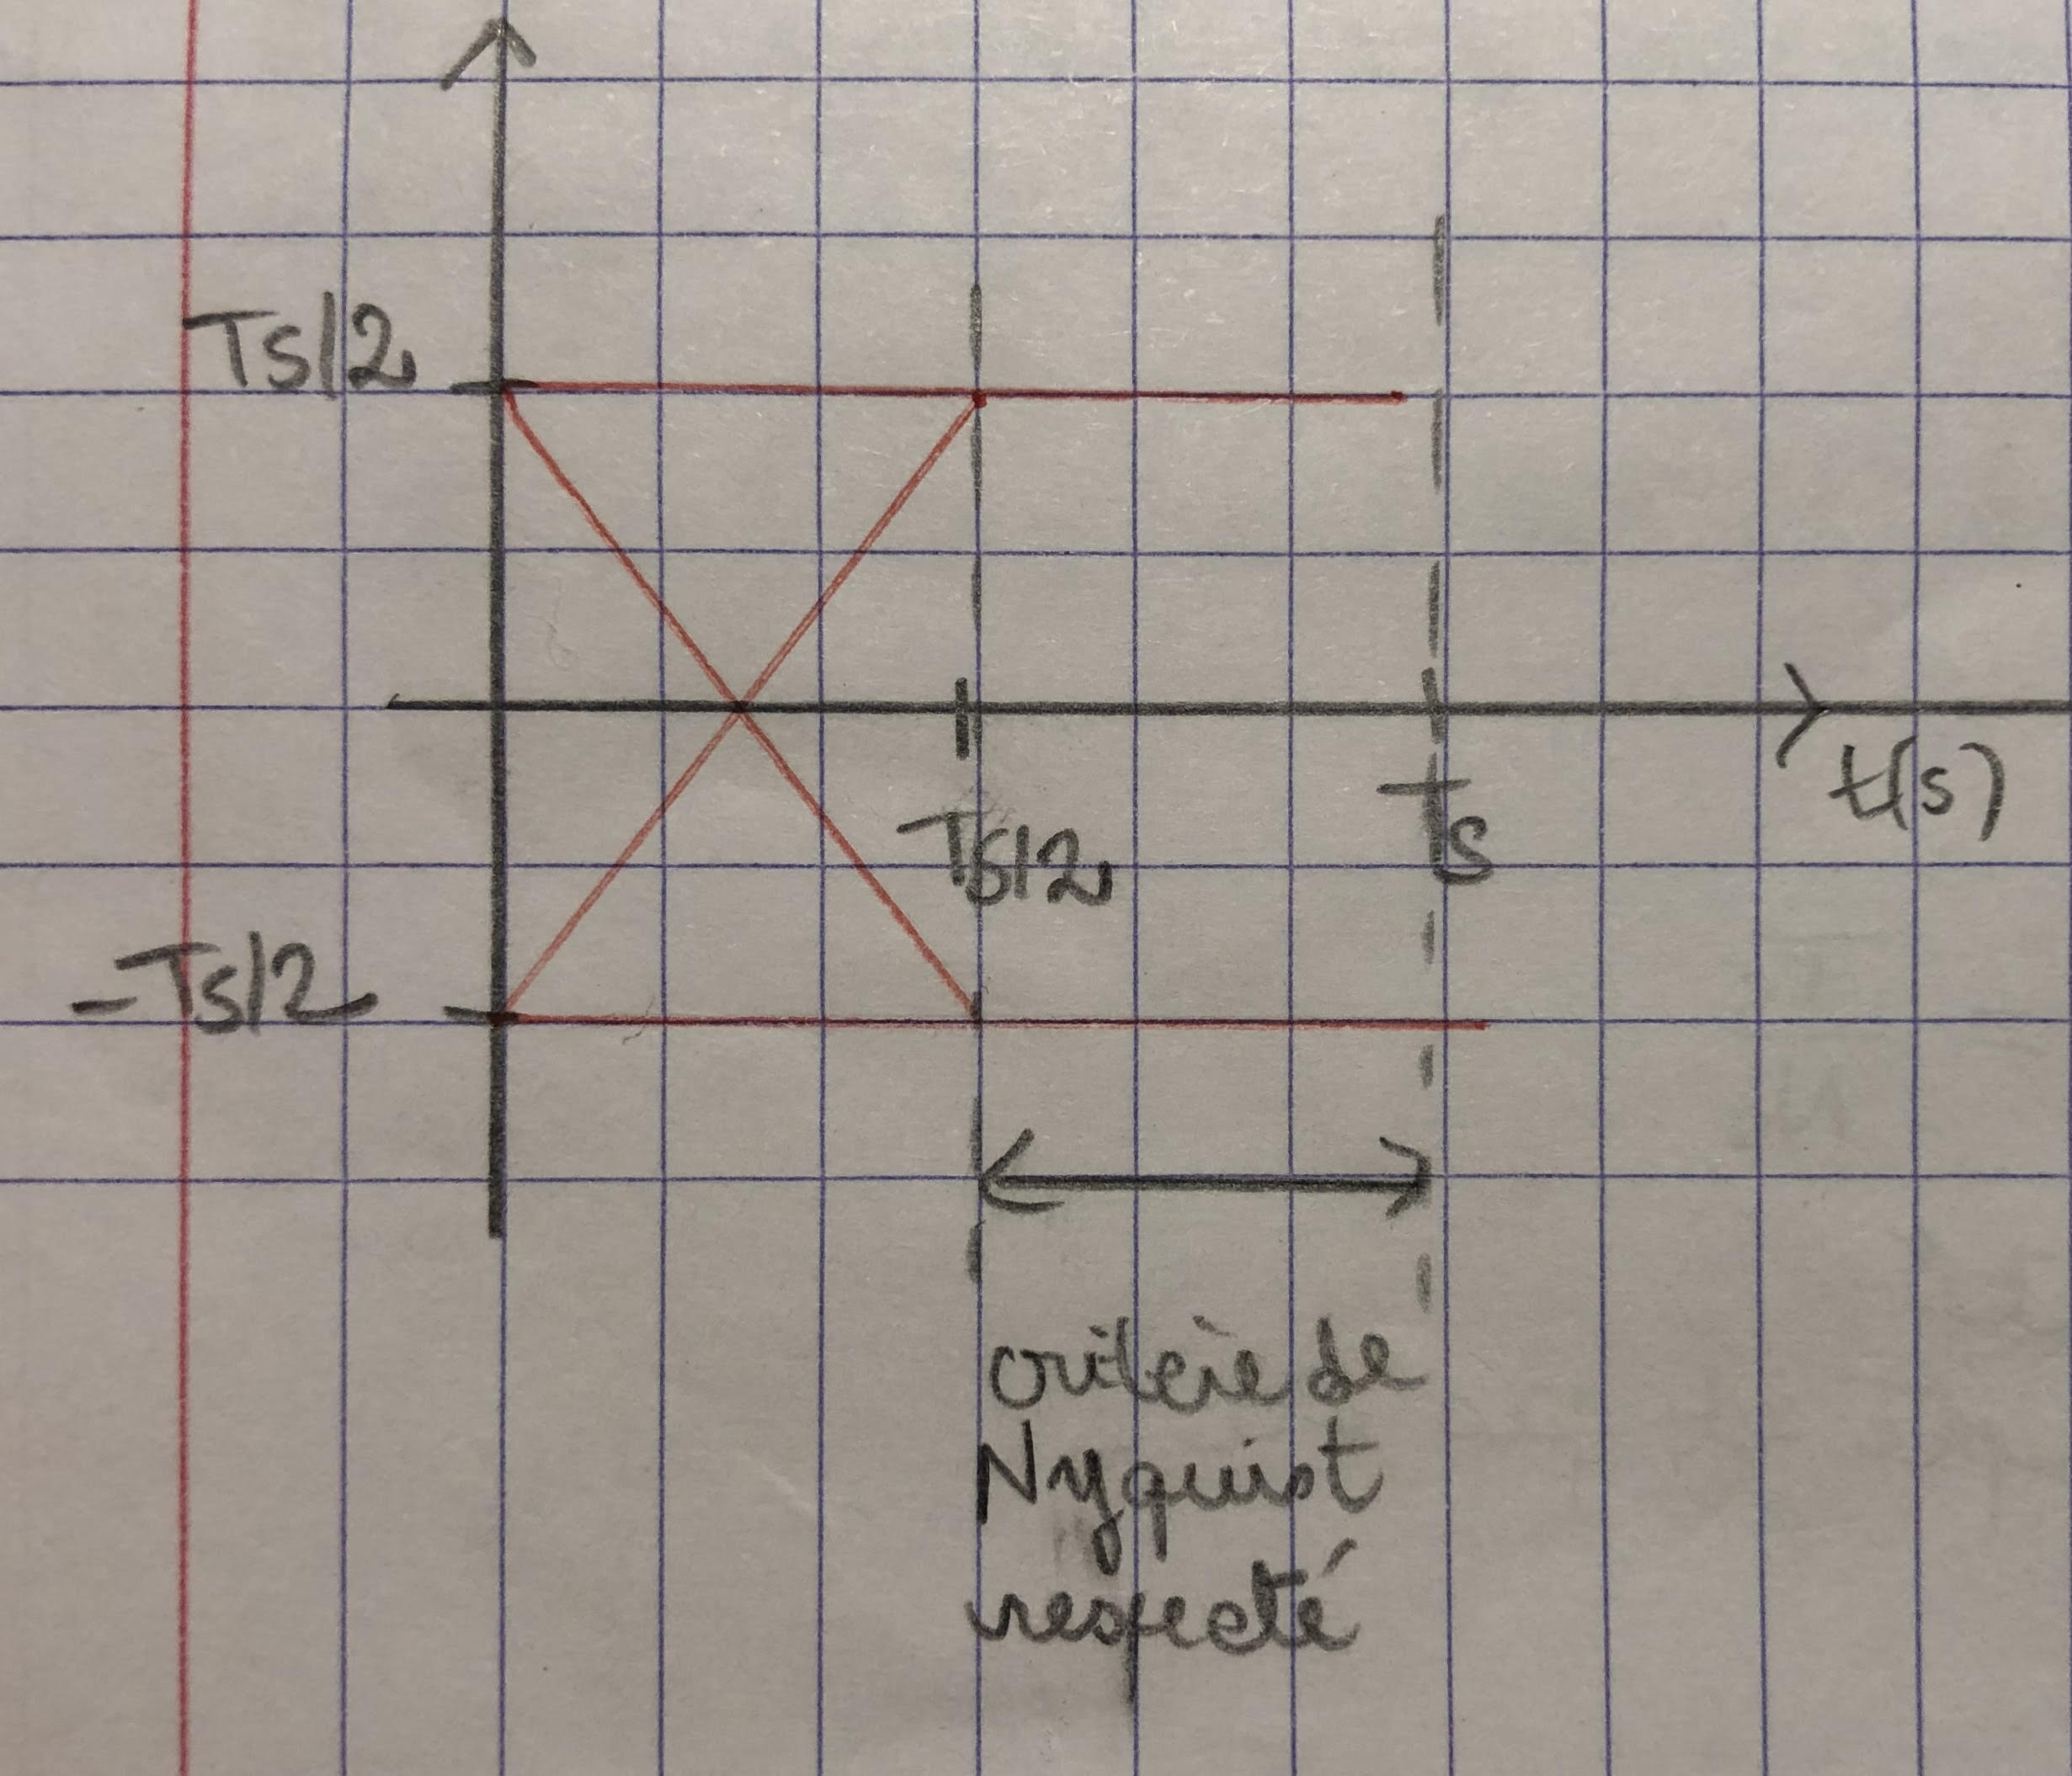 Ts/2
t(s)
Ts/2
Ts
-Ts/2
critère de
Nyquist
respecté